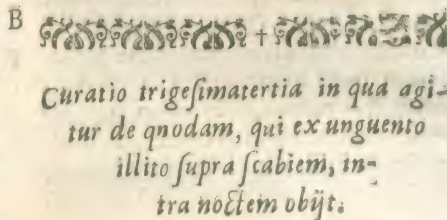 B
Curatio trigeſimatertia in qua agi-
tur de qnodam, qui ex unguento
illito ſupra ſcabiem, in-
tra noctem obijt.